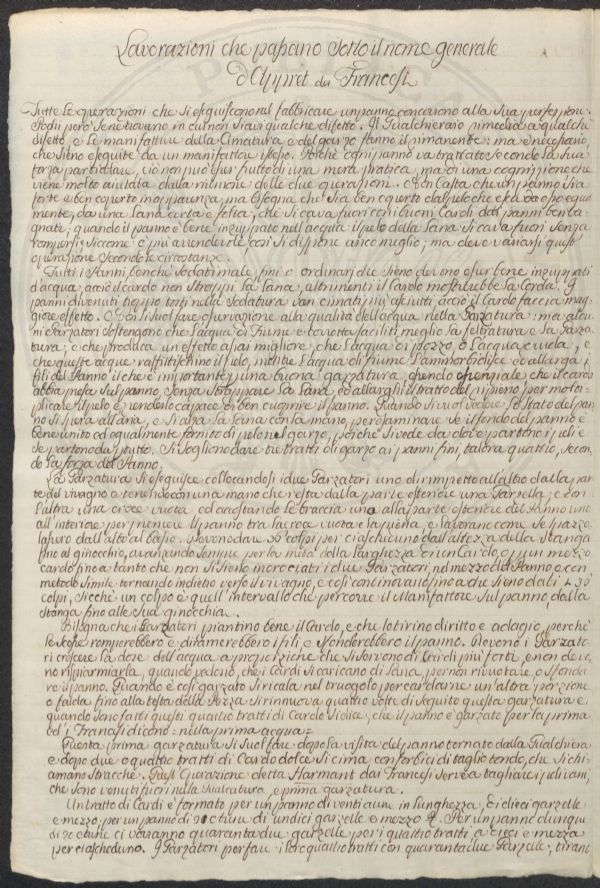 Lavorazioni che passano Sotto il nome generale
d'Appret dai Francesi
Tutte le operazioni che si eseguiscono nel fabbricare un panno concorrono alla Sua perfezione.
pochi però se ne trovano in cui non siavi qualche difetto. Il Gualchieraio rimedia a qualche
difetto e le manifatture della Cimatura e del garzo fanno il rimanente: ma è necessario,
che sieno eseguite da un manifattore istesso. Poichè ogni panno va trattato secondo la Sua
forza particolare, ciò non può esser frutto di una mera pratica, ma di una cognizione che
viene molto aiutata dalla riunione delle due operazioni. Non basta che un panno sia
forte e ben coperto in apparenza, ma bisogna che sia ben coperto dal pelo che
mente, da una lana corta e folta, che si cava fuori con buoni Cardi dai panni ben ba-
gnati; quando il panno è bene inzuppato nell'acqua il pelo della lana si cava fuori senza
rompersi, siccome è più arrendevole così si dispone assai meglio; ma deve variarsi questa
operazione secondo le circostanze.
Tutti i Panni, benchè sodati male, fini o ordinari che sieno devono esser bene inzuppati
d'acqua, acciò il cardo non strappi la lana, altrimenti il Cardo mostrerebbe la Corda. I
panni divenuti troppo tosti nella Sodatura van cimati più asciutti, acciò il Cardo faccia mag-
giore effetto. Non si suol fare osservazione alla qualità dell'acqua nella Garzatura: ma alcu-
ni Garzatori sostengono che l'acqua di Fiume e faciliti meglio la feltratura e la Garza-
tura, e che produca un effetto assai migliore, che l'acqua di pozzo, o l'acqua cruda, e
che queste acque raffittischino il pelo, mentre l'acqua di fiume l'ammorbidisce ed allarga i
fili del Panno il che è importante per una buona garzatura, essendo essenziale che il cardo
abbia presa sul panno senza strappare la lana, ed allarghi il tratto del ripieno per molti-
plicare il pelo e renderlo capace di ben cuoprire il panno. Quando si vuol vedere lo stato del pan-
no si spera all'aria, e si alza la lana con la mano, per esaminare se il fondo del panno è
bene unito ed egualmente fornito di pelo nel garzo, poichè si vede da dove partono i peli e
se partono da pertutto. Si sogliono dare tre tratti di garzo ai panni fini, talora quattro, secon-
do la forza del Panno.
La Garzatura si eseguisce collocandosi i due Garzatori uno dirimpetto all'altro dalla par-
te del vivagno e tenendo con una mano che resta dalla parte esteriore una Garzella, e con
l'altra una croce vuota, ed accostando le braccia una alla parte esteriore del Panno uno
all'interiore per mettere il panno tra la croce vuota e la piena, e lavorano come se spazzo-
lassero dall'alto al basso. Devono dare 36 colpi per ciascheduno dall'altezza della Stanga
fino al ginocchio, avanzando sempre per la metà della larghezza di un Cardo, o un mezzo
cardo fino a tanto che non si sieno incrociati i due Garzatori, nel mezzo del Panno e con
metodo simile tornando indietro verso il vivagno, e così continovano fino a che sieno dati i 36
colpi, sicchè un colpo è quell'intervallo che percorre il Manifattore sul panno, dalla
Stanga fino alle sua ginocchia.
Bisogna che i Garzatori piantino bene il Cardo, e che lo tirino diritto e adagio, perchè
le scosse romperebbero e diramerebbero i fili, e sfonderebbero il panno. Devono i Garzato-
ri crescere la dose dell'acqua a proporzione che si servono di Cardi più forti, e non devo-
no risparmiarla, quando vedono, che i Cardi si caricano di lana, per non rivoltare, o sfonda-
re il panno. Quando è così garzato si ricala nel truogolo per cardarne un'altra porzione
o falda, fino alla testa della Pezza. Si rinnuova quattro volte di seguito questa garzatura e
quando sono fatti questi quattro tratti di Cardo si dice, che il panno è garzato per la prima
ed i Francesi dicono = nella prima acqua =
Questa prima garzatura si suol fare dopo la visita del panno tornato dalla Gualchiera
e dopo due o quattro tratti di Cardo dolce si cima con forbici di taglio tondo, che si chi-
amano Stracche. Quest'operazione detta Harmant dai Francesi serve a tagliare i peli vani,
che sono venuti fuori nella Gualcatura, e prima garzatura.
Un tratto di Cardi è formato per un panno di venti aune in lunghezza, di dieci garzelle
e mezzo, per un panno di 20 e tune di undici garzelle e mezzo. Per un panno dunque
di 20 aune ci vorranno quaranta due garzelle per i quattro tratti, a dieci e mezza
per ciascheduno. I Garzatori per fare i loro quattro tratti con quaranta due Garzelle, tirano